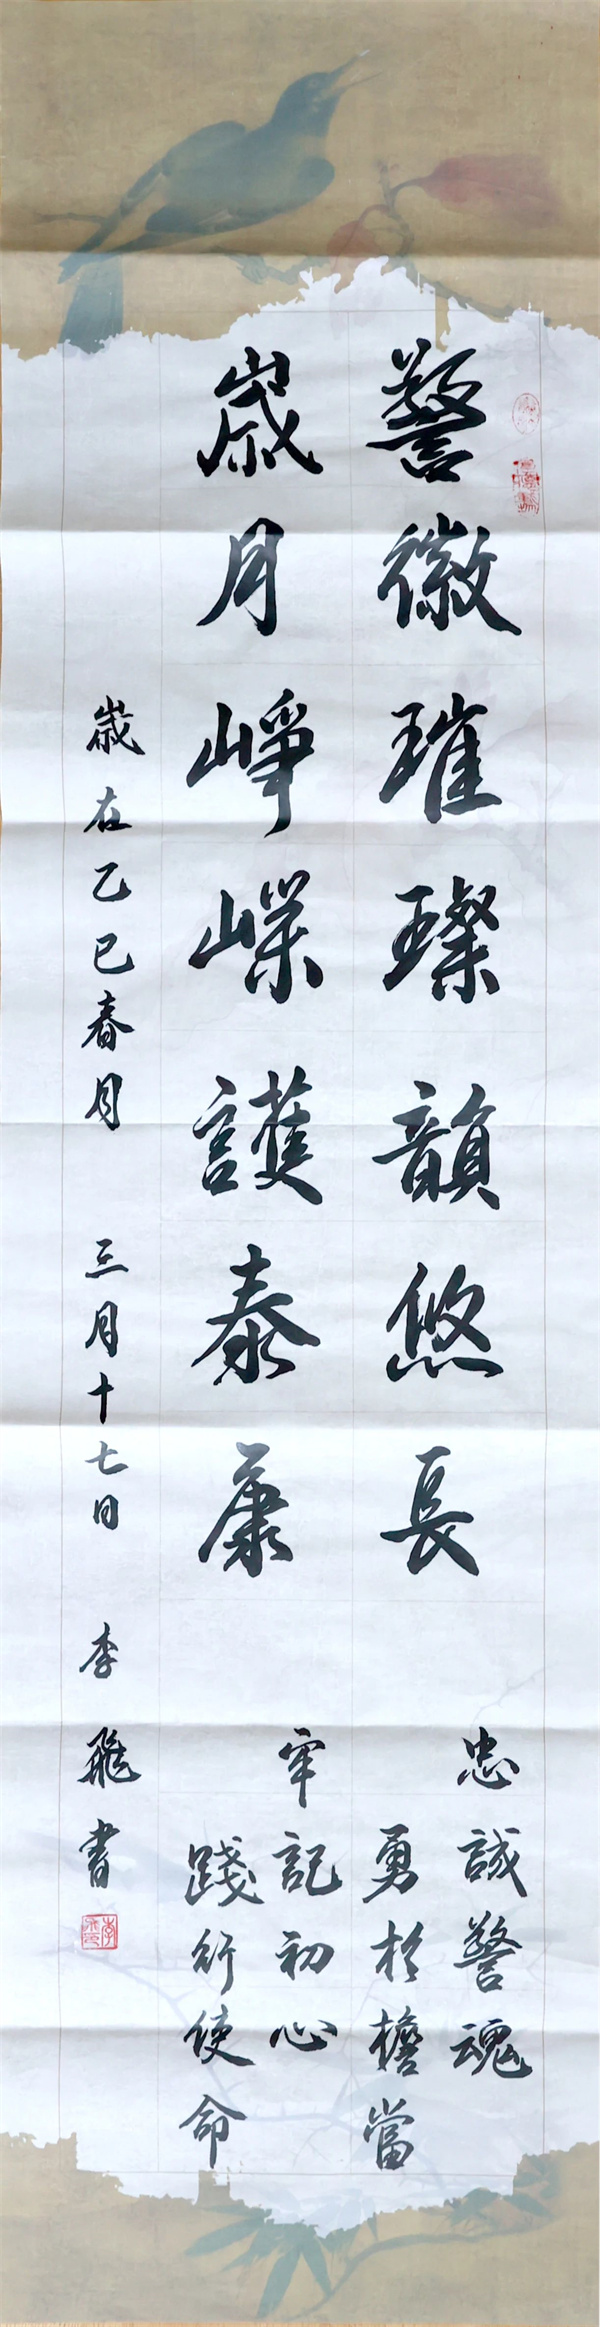 警徽璀璨韻悠長
歲月崢嶸護泰康
忠誠警魂
勇於擔當
牢記初心
踐行使命
歲在乙巳春月 三月十七日 李飛書